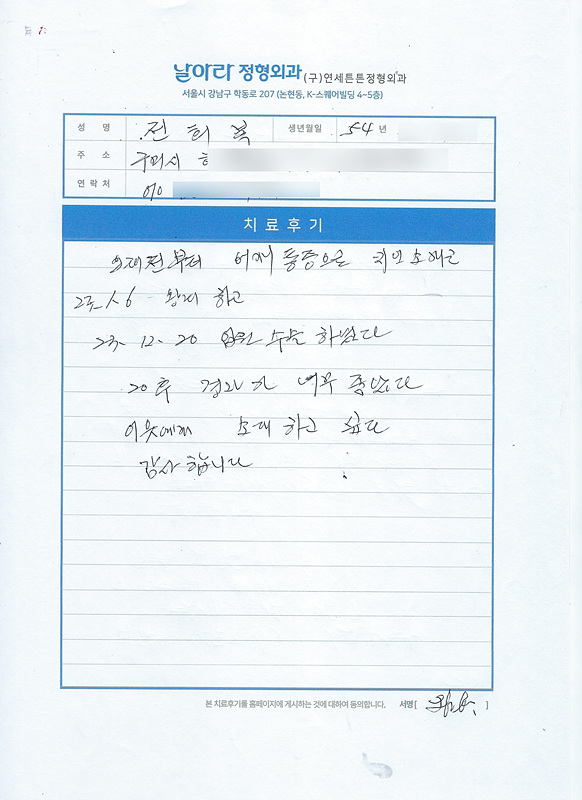 날아라 정형외과 (구)연세튼튼정형외과
서울시 강남구 학동로 207 (논현동, K-스퀘어빌딩 4~5층)
성 명 전 희 복 생년월일 54 년
주 소 구미시
연락처 010
치료후기
오래전부터 어깨 통증으로 지인 소개로
하고
23. 12. 20 입원 수술 하였다
20후 경과가 너무 좋았다
이웃에게 소개 하고 싶다
감사 합니다
본 치료후기를 홈페이지에 게시하는 것에 대하여 동의합니다. 서명 [ ]